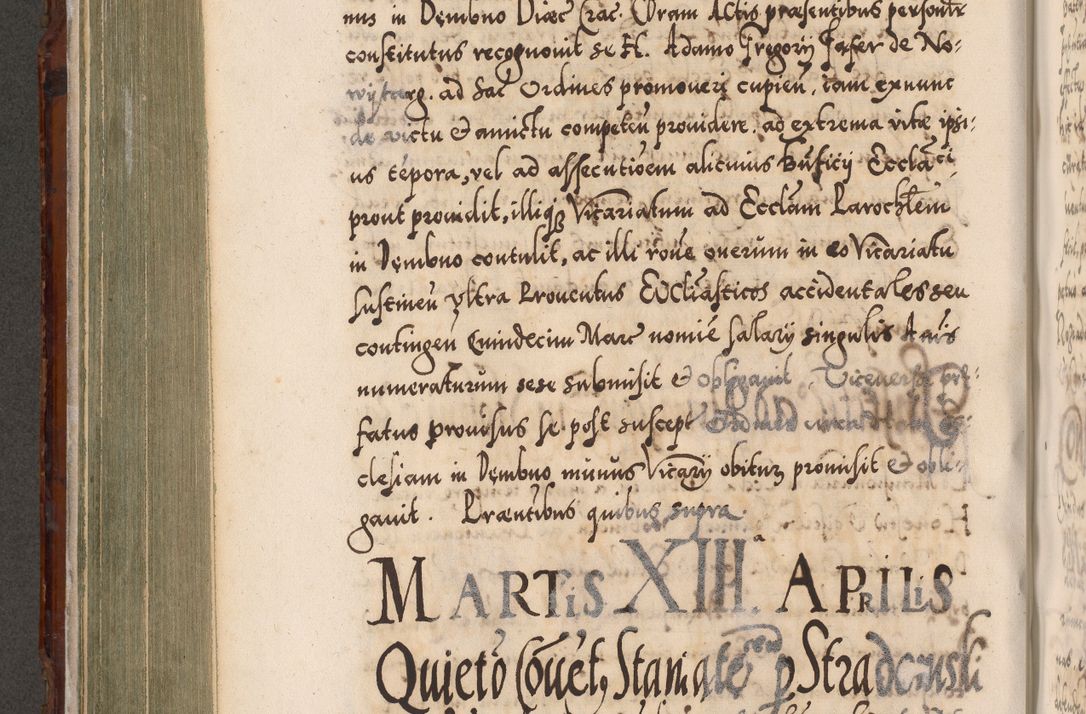 nus in Dembno Diæc Crac. Coram Actis præsentibus personlr
constitutus recognouit se H. Adamo Gregorij Jaser de No-
wytarg. ad Sac Ordines promoueri cupien, tam exnunc
de victu & amictu competen prouidere. ad extrema vitæ ipsi-
us tépora, vel ad assecutioem alicuius Bnficij Eccla ci
prout prouidit, illiqz Vicariatum ad Ecclam Parochlem
in Dembno contulit, ac illi roñe onerum in eo Vicariatu
sustineñ vltra Prouentus Ecclïasticos accidentales seu
contingeñ Quindecim Marc nomie salarij singulis Anis
numeraturum sese submisit & obligauit. Viceuersa pre-
fatus prouisus se post suscept
clesiam in Dembno munus Vicarij obitur promisit & obli-
gauit. Præntibus quibus supra.
MARTIS XIII.a APRILIS
Quieto Couet, Stania p Stradomski